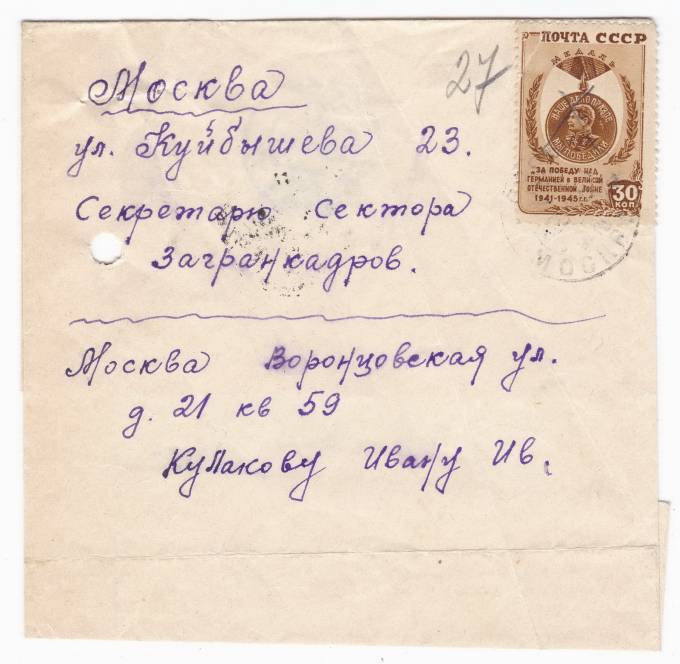 Москва
ул. Куйбышева 23.
Секретарю сектора
Загранкадров.
Москва Воронцовская ул.
д. 21 кв 59
Кулакову Ивану Ив.
27
ПОЧТА СССР
МЕДАЛЬ
НАШЕ ДЕЛО ПРАВОЕ
МЫ ПОБЕДИЛИ
"ЗА ПОБЕДУ НАД
ГЕРМАНИЕЙ В ВЕЛИКОЙ
ОТЕЧЕСТВЕННОЙ ВОЙНЕ
1941-1945 гг."
30
КОП.
МОСКВА